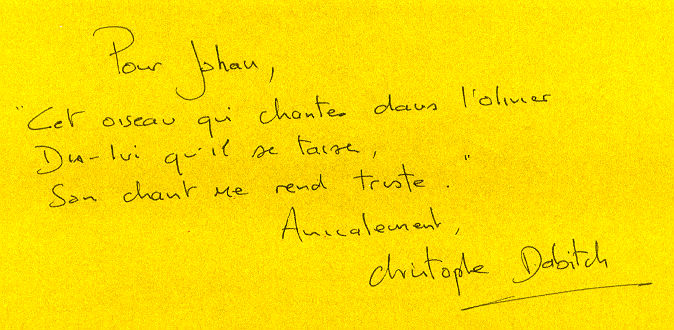 Pour Johan,
"Cet oiseau qui chante dans l'olivier
Dis-lui qu'il se taise,
Son chant me rend triste."
Amicalement,
Christophe Dabitch